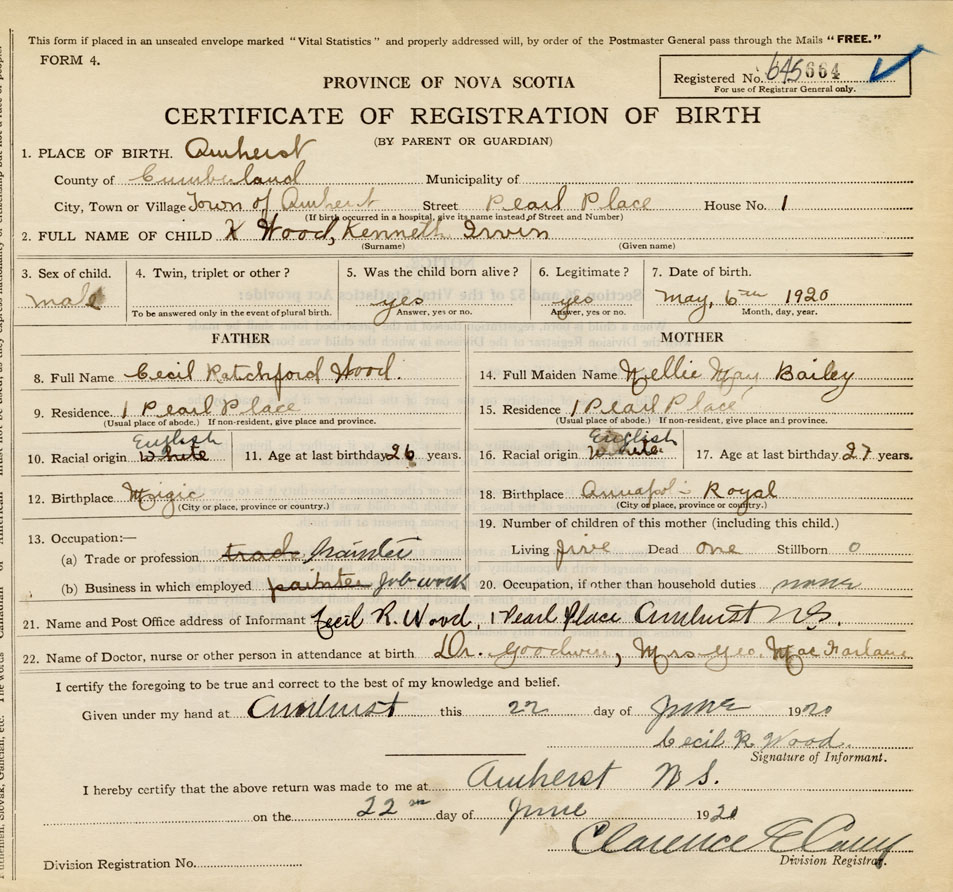 This form if placed in an unsealed envelope marked "Vital Statistics" and properly addressed will, by order of the Postmaster General pass through the Mails "FREE."
FORM 4.
Registered No. 645 664
For use of Registrar General only.
PROVINCE OF NOVA SCOTIA
CERTIFICATE OF REGISTRATION OF BIRTH
(BY PARENT OR GUARDIAN)
1. PLACE OF BIRTH. Amherst
County of Cumberland Municipality of
City, Town or Village Town of Amherst Street Pearl Place House No. 1
(If birth occurred in a hospital, give its name instead of Street and Number)
2. FULL NAME OF CHILD X Wood, Kenneth Irvin
(Surname) (Given name)
3. Sex of child. 4. Twin, triplet or other? 5. Was the child born alive? 6. Legitimate? 7. Date of birth.
male yes yes May, 6th 1920
To be answered only in the event of plural birth. Answer, yes or no. Answer, yes or no. Month, day, year.
FATHER MOTHER
8. Full Name Cecil Ratchford Wood. 14. Full Maiden Name Nellie May Bailey
9. Residence. 1 Pearl Place 15. Residence 1 Pearl Place
(Usual place of abode.) If non-resident, give place and province. (Usual place of abode.) If non-resident, give place and province.
English English
10. Racial origin White 11. Age at last birthday 26 years. 16. Racial origin White 17. Age at last birthday 27 years.
12. Birthplace 18. Birthplace Royal
(City or place, province or country.) (City or place, province or country.)
19. Number of children of this mother (including this child.)
13. Occupation:—
(a) Trade or profession trade Painter Living five Dead one Stillborn 0
(b) Business in which employed painter Job work 20. Occupation, if other than household duties none
21. Name and Post Office address of Informant Cecil R. Wood, 1 Pearl Place Amherst N.S.
22. Name of Doctor, nurse or other person in attendance at birth Dr. Goodwin, Mrs Geo. MacFarlane
I certify the foregoing to be true and correct to the best of my knowledge and belief.
Given under my hand at Amherst this 22 day of June 1920
Cecil R Wood.
Signature of Informant.
I hereby certify that the above return was made to me at Amherst N S.
on the 22nd day of June 1920
Clarence E
Division Registrar.
Division Registration No.